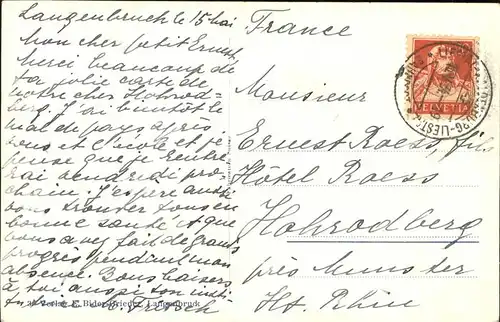 Langenbruck le 15 mai
Mon cher petit Ernest
Merci beaucoup de
ta jolie carte de
notre cher Hohrod-
berg. J'ai bientôt le
mal du pays après
vous et l'école et je
pense que je rentre-
rai vendredi pro-
chain. J'espère aussi
vous trouver tous en
bonne santé et que
vous avez fait de grands
progrès pendant mon
absence. Bons baisers
à toi aussi ton insti-
tutrice E. Fritsch
Verlag E. Bider-Brieder, Langenbruck
France
Monsieur
Ernest Roess, fils
Hôtel Roess
Hohrodberg
près Munster
Ht. Rhin
HELVETIA
LIESTAL